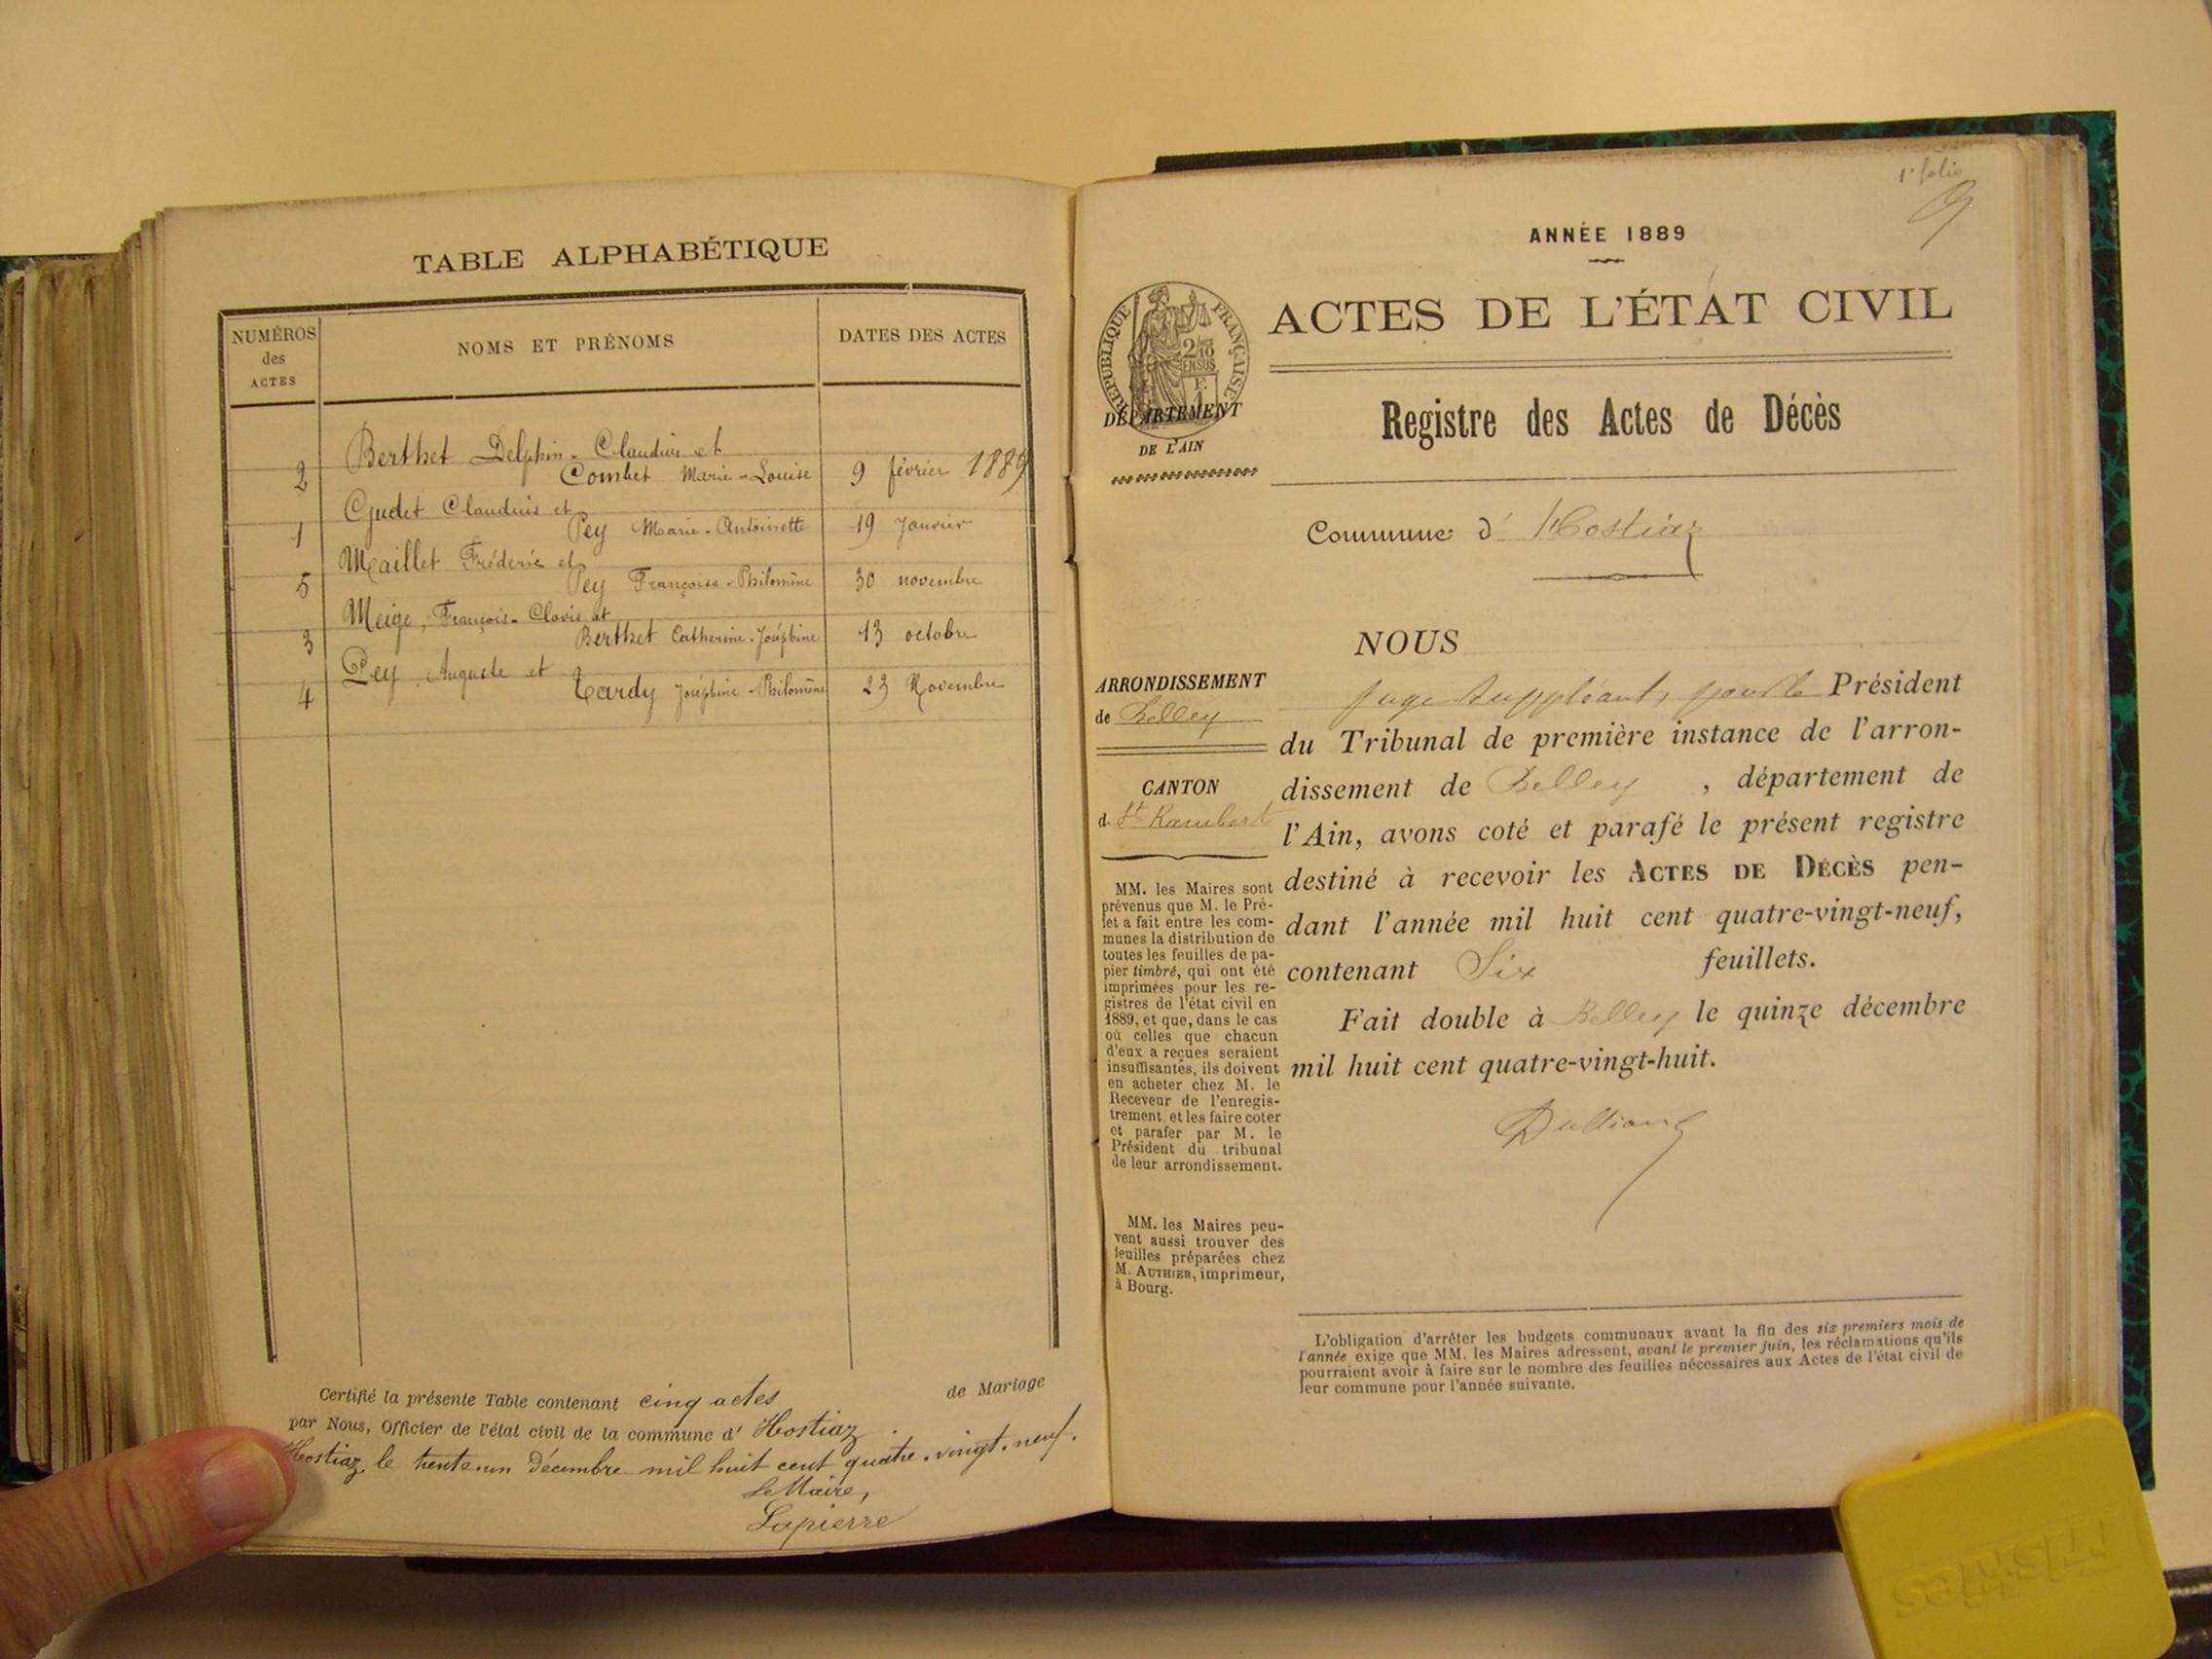 TABLE ALPHABÉTIQUE
NUMÉROS
des
ACTES
NOMS ET PRÉNOMS
DATES DES ACTES
Berthet Delphin-Claudius et
2 Combet Marie-Louise 9 février 1889
Gudet Claudius et
1 Pey Marie-Antoinette 19 Janvier
Maillet Fréderic et
5 Pey Françoise-Philomène 30 novembre
Meige, François-Clovis et
3 Berthet Catherine-Joséphine 13 octobre
Pey Auguste et
4 Tardy Joséphine-Philomène 23 Novembre
Certifié la présente Table contenant cinq actes de Mariage
par Nous, Officier de l'état civil de la commune d' Hostiaz
Hostiaz, le trente-un Décembre mil huit cent quatre-vingt-neuf.
Le Maire,
Lapierre
1er folio
ANNÉE 1889
ACTES DE L'ÉTAT CIVIL
RÉPUBLIQUE FRANÇAISE
2/10
EN SUS
DÉPARTEMENT
DE L'AIN
Registre des Actes de Décès
Commune d' Hostiaz
NOUS
ARRONDISSEMENT
de Belley
CANTON
d. St Rambert
MM. les Maires sont
prévenus que M. le Pré-
fet a fait entre les com-
munes la distribution de
toutes les feuilles de pa-
pier timbré, qui ont été
imprimées pour les re-
gistres de l'état civil en
1889, et que, dans le cas
où celles que chacun
d'eux a reçues seraient
insuffisantes, ils doivent
en acheter chez M. le
Receveur de l'enregis-
trement et les faire coter
et parafer par M. le
Président du tribunal
de leur arrondissement.
MM. les Maires peu-
vent aussi trouver des
feuilles préparées chez
M. AUTHIER, imprimeur,
à Bourg.
Juge Suppléant, pour le Président
du Tribunal de première instance de l'arron-
dissement de Belley , département de
l'Ain, avons coté et parafé le présent registre
destiné à recevoir les ACTES DE DÉCÈS pen-
dant l'année mil huit cent quatre-vingt-neuf,
contenant Six feuillets.
Fait double à Belley le quinze décembre
mil huit cent quatre-vingt-huit.
L'obligation d'arrêter les budgets communaux avant la fin des six premiers mois de
l'année exige que MM. les Maires adressent, avant le premier juin, les réclamations qu'ils
pourraient avoir à faire sur le nombre des feuilles nécessaires aux Actes de l'état civil de
leur commune pour l'année suivante.
Friskies